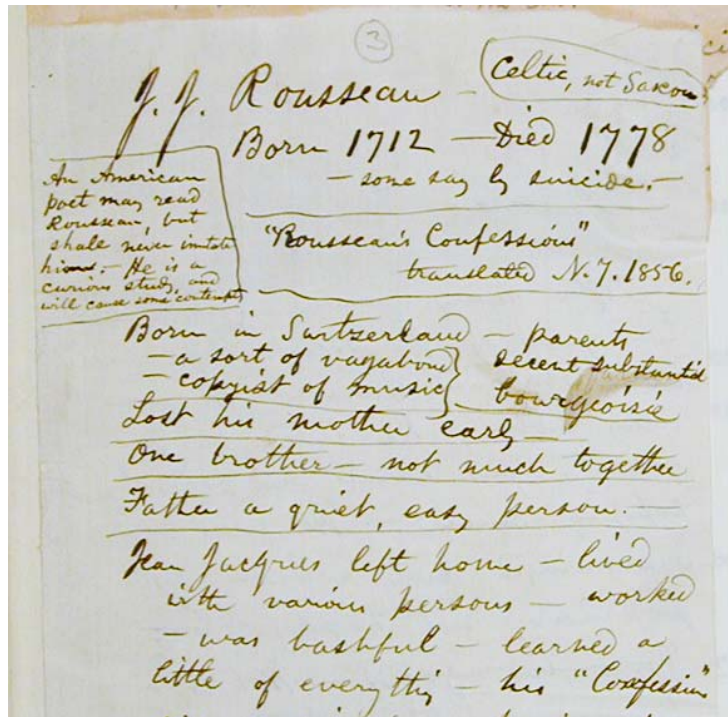 3
J. J. Rousseau –
Celtic, not Saxon
Born 1712 – Died 1778
– some say by suicide. –
An American
poet may read
Rousseau, but
shall never imitate
him. – He is a
curious study, and
will cause some contempt
"Rousseau's Confessions"
translated N.Y. 1856.
Born in Switzerland – parents
– a sort of vagabond
– copyist of music
decent substantial
bourgeoisie
Lost his mother early –
One brother – not much together
Father a quiet, easy person. –
Jean Jacques left home – lived
with various persons – worked
– was bashful – learned a
little of everything – his "Confession